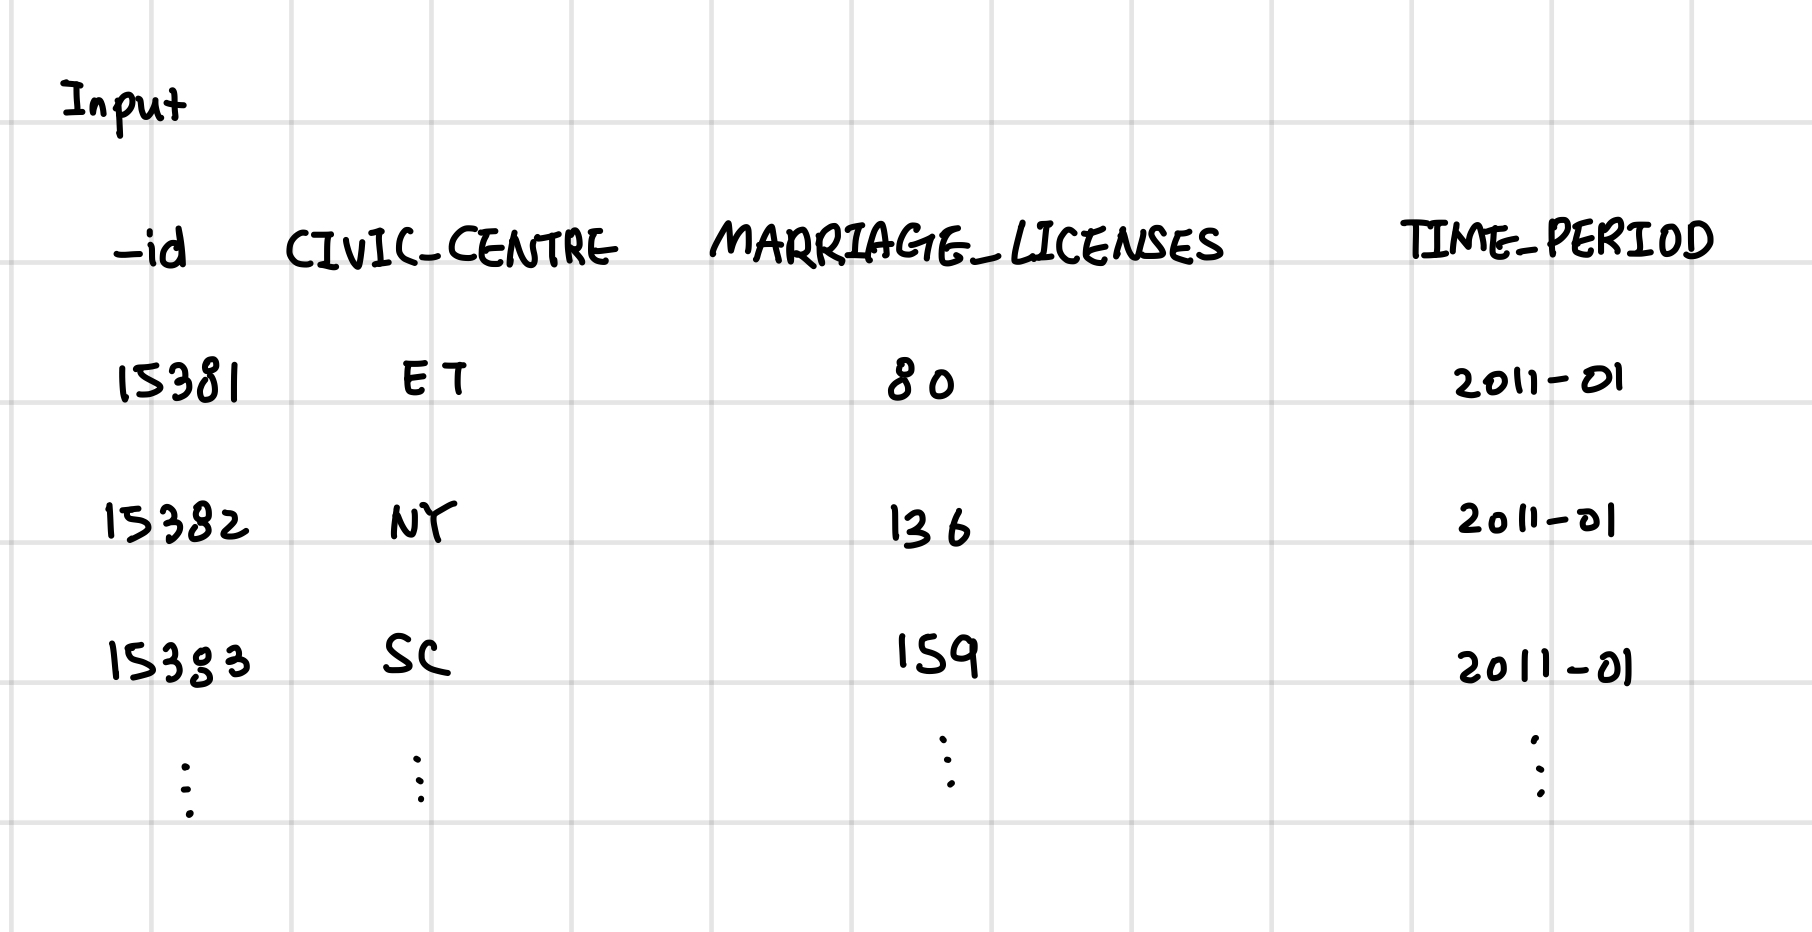 Input
_id CIVIC_CENTRE MARRIAGE_LICENSES TIME_PERIOD
15381 ET 80 2011-01
15382 NY 136 2011-01
15383 SC 159 2011-01
⋮ ⋮ ⋮ ⋮